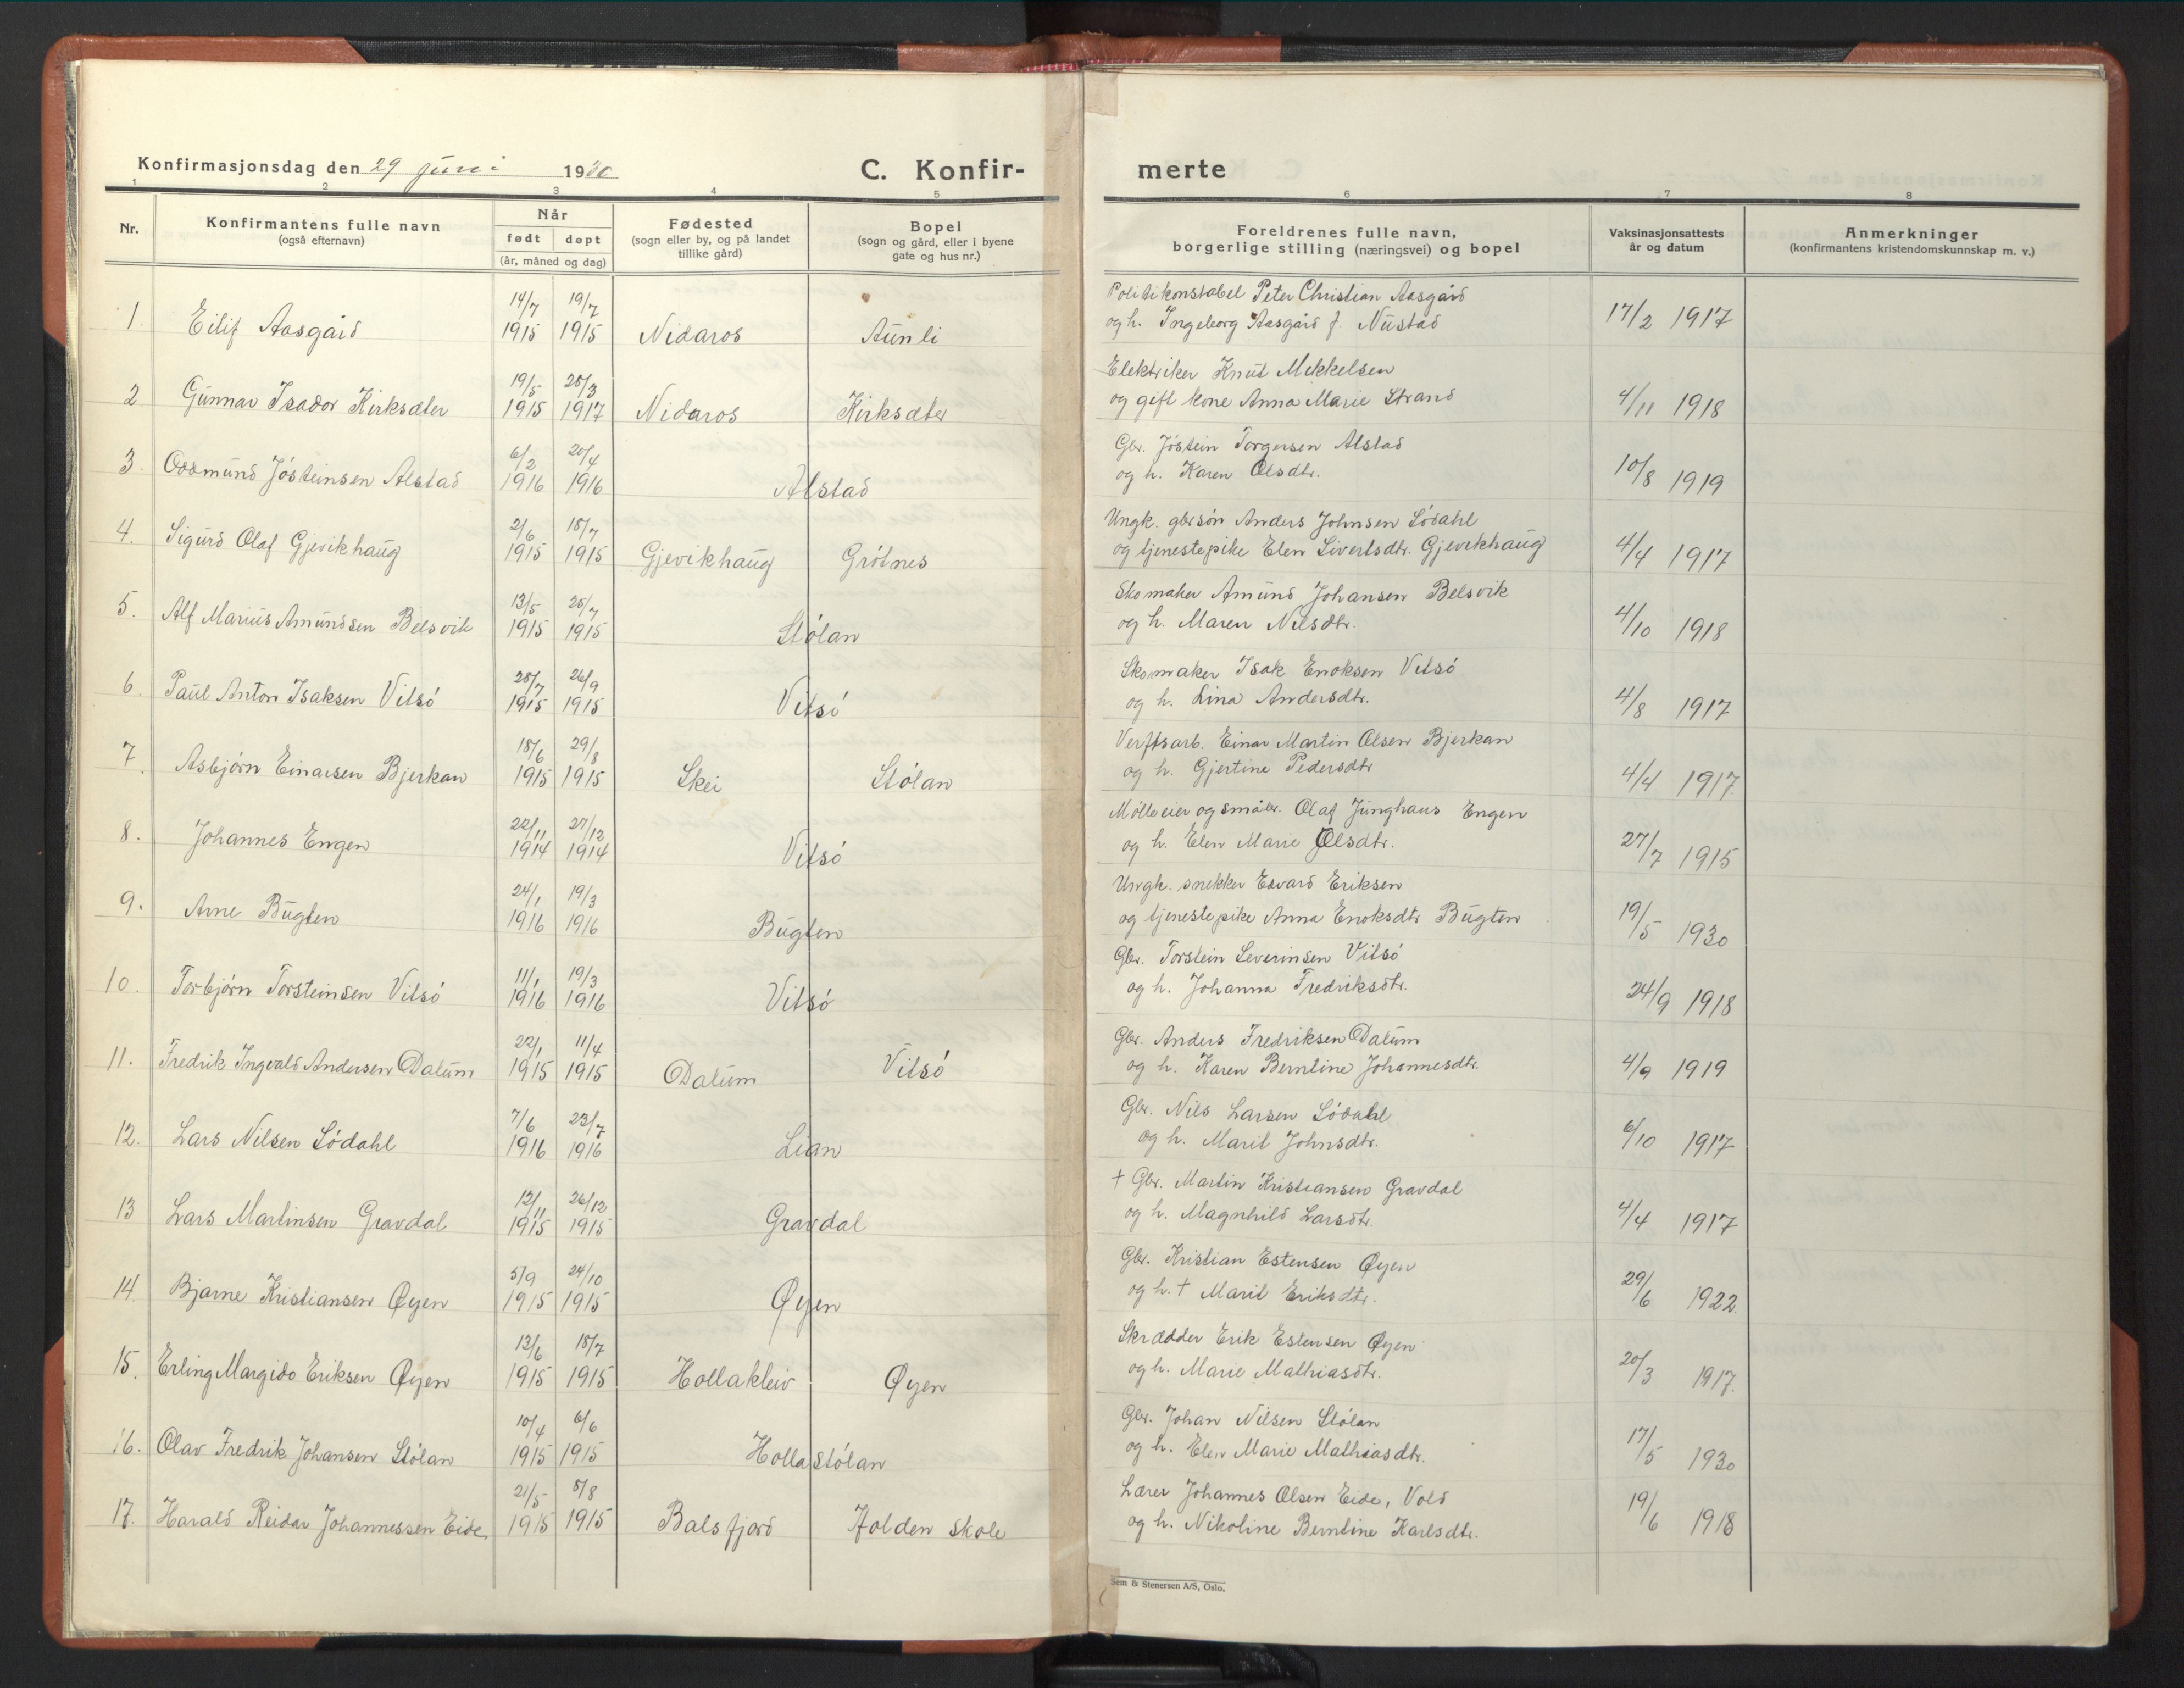 Konfirmasjonsdag den 29 juni 1930
C. Konfir-
merte
1 2 3 4 5 6 7 8
Nr.
Konfirmantens fulle navn
(også efternavn)
Når
født døpt
(år, måned og dag)
Fødested
(sogn eller by, og på landet
tillike gård)
Bopel
(sogn og gård, eller i byene
gate og hus nr.)
Foreldrenes fulle navn,
borgerlige stilling (næringsvei) og bopel
Vaksinasjonsattests
år og datum
Anmerkninger
(konfirmantens kristendomskunnskap m. v.)
14/7 19/7 Politikonstabel Peter Christian Aasgård
1. Eilif Aasgård 1915 1915 Nidaros Aunli og h. Ingeborg Aasgård f. Nustad 17/2 1917
19/5 25/3 Elektriker Knut Mikkelsen
2 Gunnar Isador Kirksæter 1915 1917 Nidaros Kirksæter og gift kone Anna Marie Strand 4/11 1918
6/2 20/4 Gbr. Jostein Torgersen Alstad
3. Oddmund Jósteinsen Alstad 1916 1916 Alstad og h. Karen Olsdtr. 10/8 1919
2/6 18/7 Ungk. gbrsøn Anders Johnsen Södahl
4. Sigurd Olaf Gjevikhaug 1915 1915 Gjevikhaug Grótnes og tjenestepike Elen Sivertsdtr. Gjevikhaug 4/4 1917
13/5 25/7 Skomaker Amund Johansen Belsvik
5. Alf Marius Amundsen Belsvik 1915 1915 Stólan og h. Maren Nilsdtr. 4/10 1918
28/7 26/9 Skomaker Isak Enoksen Vitsó
6. Paul Anton Isaksen Vitsó 1915 1915 Vitsó og h. Lina Andersdtr. 4/8 1917
18/6 29/8 Verftsarb. Einar Martin Olsen Bjerkan
7. Asbjørn Einarsen Bjerkan 1915 1915 Skei Stólan og h. Gjertine Pedersdtr 4/4 1917
22/11 27/12 Mølleeier og småbr. Olaf Junghans Engen
8. Johannes Engen 1914 1914 Vitsó og h. Elen Marie Olsdtr. 27/7 1915
24/1 19/3 Ungk. snekker Edvard Eriksen
9. Arne Bugten 1916 1916 Bugten og tjenestepike Anna Enoksdtr Bugten 19/5 1930
11/1 19/3 Gbr. Torstein Severinsen Vitsó
10. Torbjørn Torsteinsen Vitsó 1916 1916 Vitsó og h. Johanna Fredriksdtr. 24/9 1918
22/1 11/4 Gbr. Anders Fredriksen Dalum
11. Fredrik Ingvald Andersen Dalum 1915 1915 Dalum Vitsó og h. Karen Berntine Johannesdtr. 4/9 1919
7/6 23/7 Gbr. Nils Larsen Södahl
12. Lars Nilsen Södahl 1916 1916 Lian og h. Marit Johnsdtr. 6/10 1917
12/11 26/12 † Gbr. Martin Kristiansen Gravdal
13 Lars Martinsen Gravdal 1915 1915 Gravdal og h. Magnhild Larsdtr. 4/4 1917
5/9 24/10 Gbr. Kristian Estensen Øyen
14. Bjarne Kristiansen Øyen 1915 1915 Øyen og h. † Marit Eriksdtr. 29/6 1922
13/6 18/7 Skrædder Erik Estensen Øyen
15. Erling Margido Eriksen Øyen 1915 1915 Hollakleiv Øyen og h. Marie Mathiasdtr. 20/3 1917.
10/4 6/6 Gbr. Johan Nilsen Stólan
16. Olav Fredrik Johansen Stólan 1915 1915 Hollastólan og h. Elen Marie Mathiasdtr. 17/5 1930
21/5 8/8 Lærer Johannes Olsen Eide, Vold
17. Harald Reidar Johannessen Eide, 1915 1915 Balsfjord Holden skole og h. Nikoline Berntine Karlsdtr. 19/6 1918
Sem & Stenersen A/S, Oslo.